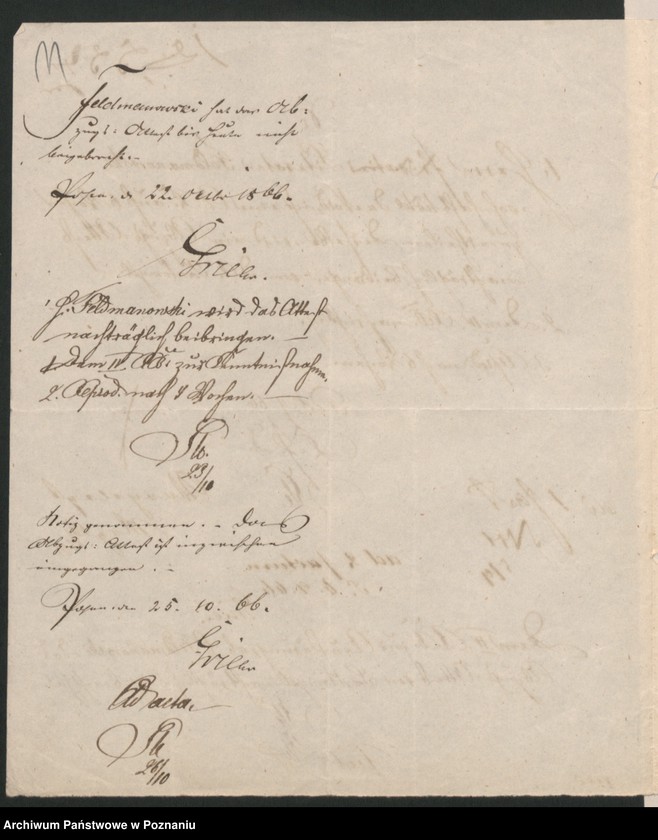 Feldmanowski hat das Ab=
zugs=Attest bis heute nicht
beigebracht.
Posen d 22 Octbr 1866.
Grille.
H. Feldmanowski wird das Attest
nachträglich beibringen.
1 Dem II. Kbr zur Kenntnißnahme.
2. Reprod. nach 4 Wochen.
23/10
Notiz genommen. Das
Abzugs=Attest ist inzwischen
eingegangen.
Posen den 25. 10. 66.
Grille
Ad acta.
26/10
Archiwum Państwowe w Poznaniu